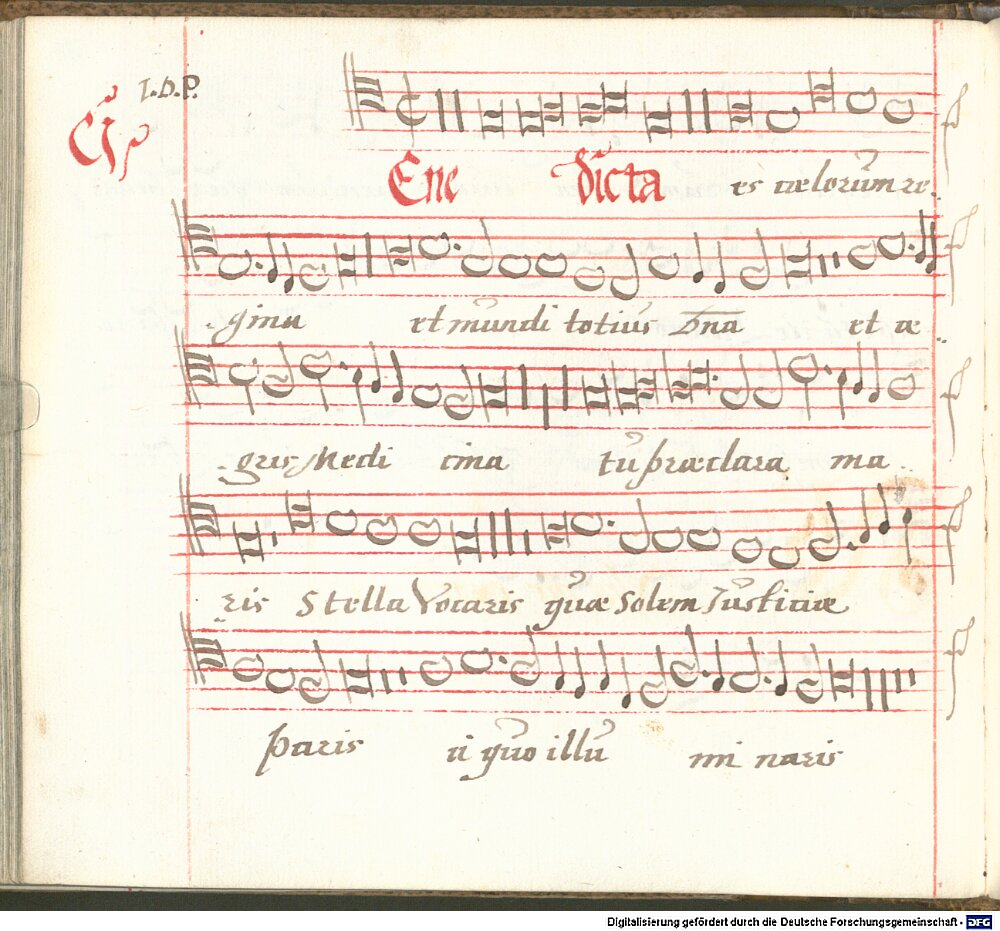 I.D.P.
Ene dicta es cælorum re
gina et mundi totius dna et æ
gris Medi cina tu præclara ma
ris Stella Vocaris quæ Solem Justiciæ
paris a quo illu mi naris
Digitalisierung gefördert durch die Deutsche Forschungsgemeinschaft - DFG